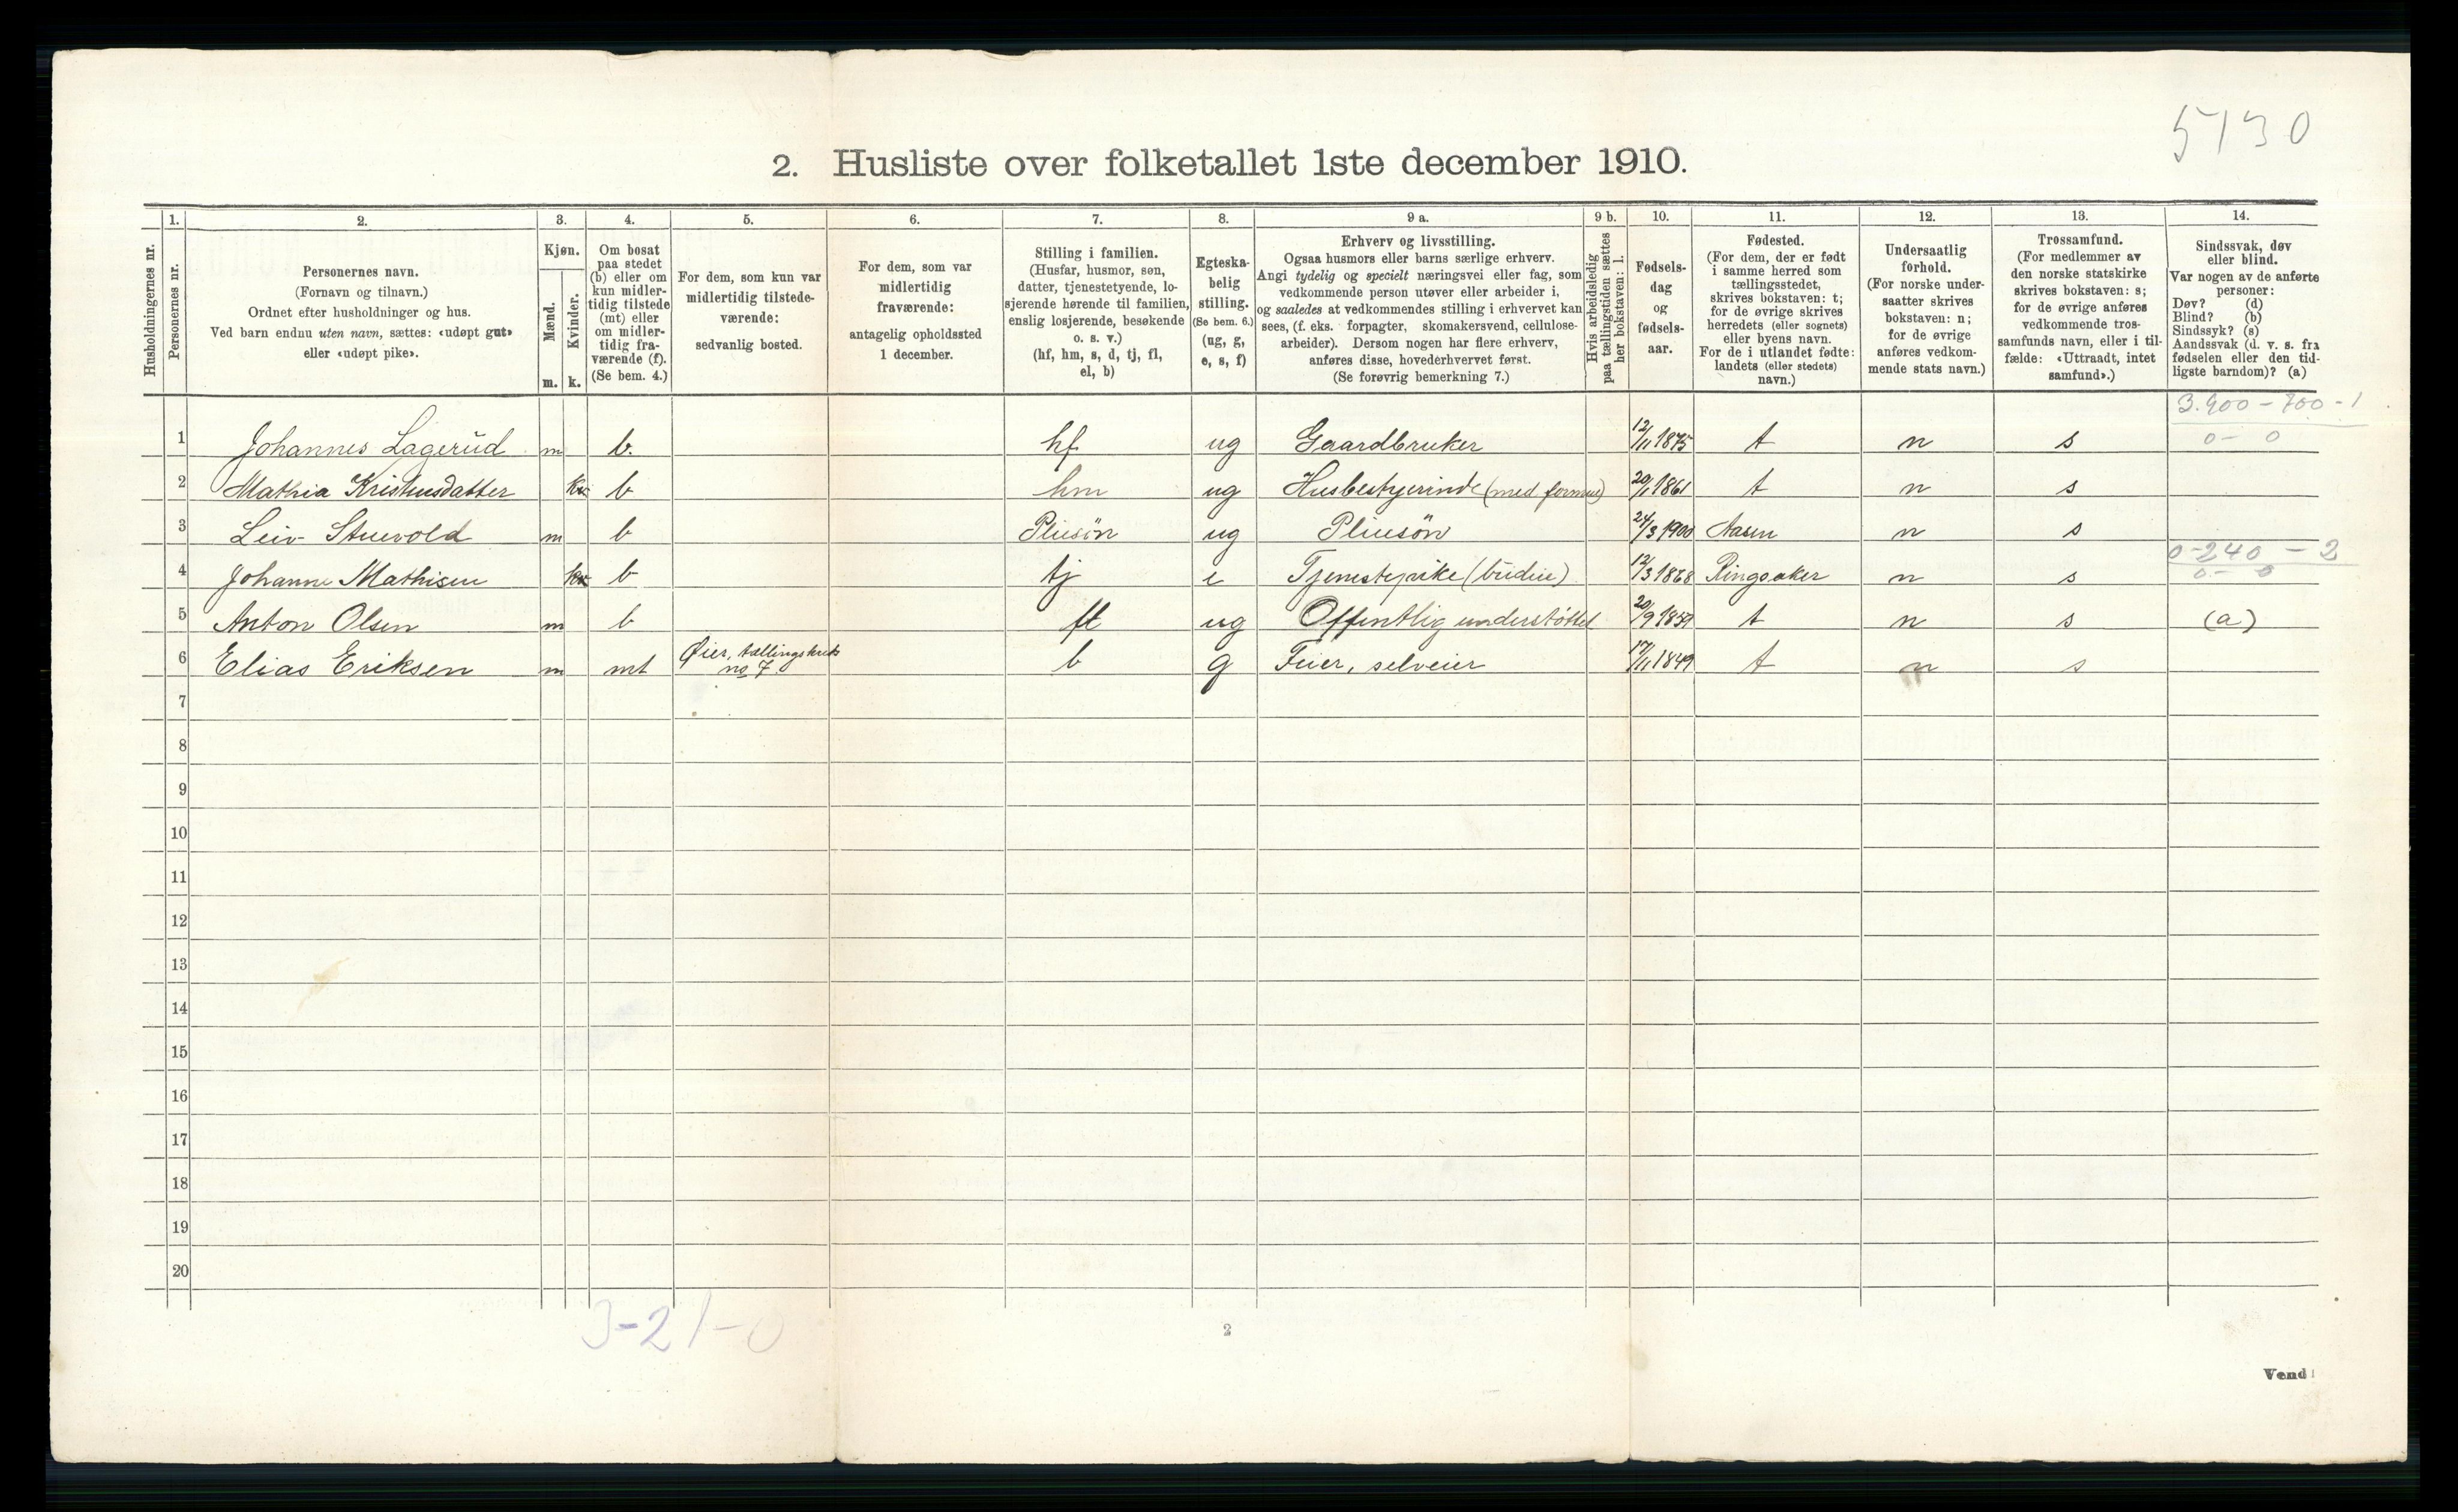 5130
2. Husliste over folketallet 1ste december 1910.
1. 2. 3. 4. 5. 6. 7. 8. 9 a. 9 b. 10. 11. 12. 13. 14.
Husholdningernes nr.
Personernes nr.
Personernes navn.
(Fornavn og tilnavn.)
Ordnet efter husholdninger og hus.
Ved barn endnu uten navn, sættes: «udøpt gut»
eller «udøpt pike».
Kjøn.
Mænd.
Kvinder.
m. k.
Om bosat
paa stedet
(b) eller om
kun midler-
tidig tilstede
(mt) eller
om midler-
tidig fra-
værende (f).
(Se bem. 4.)
For dem, som kun var
midlertidig tilstede-
værende:
sedvanlig bosted.
For dem, som var
midlertidig
fraværende:
antagelig opholdssted
1 december.
Stilling i familien.
(Husfar, husmor, søn,
datter, tjenestetyende, lo-
sjerende hørende til familien,
enslig losjerende, besøkende
o. s. v.)
(hf, hm, s, d, tj, fl,
el, b)
Egteska-
belig
stilling.
(Se bem. 6.)
(ug, g,
e, s, f)
Erhverv og livsstilling.
Ogsaa husmors eller barns særlige erhverv.
Angi tydelig og specielt næringsvei eller fag, som
vedkommende person utøver eller arbeider i,
og saaledes at vedkommendes stilling i erhvervet kan
sees, (f. eks. forpagter, skomakersvend, cellulose-
arbeider). Dersom nogen har flere erhverv,
anføres disse, hovederhvervet først.
(Se forøvrig bemerkning 7.)
Hvis arbeidsledig
paa tællingstiden sættes
her bokstaven: l.
Fødsels-
dag
og
fødsels-
aar.
Fødested.
(For dem, der er født
i samme herred som
tællingsstedet,
skrives bokstaven: t;
for de øvrige skrives
herredets (eller sognets)
eller byens navn.
For de i utlandet fødte:
landets (eller stedets)
navn.)
Undersaatlig
forhold.
(For norske under-
saatter skrives
bokstaven: n;
for de øvrige
anføres vedkom-
mende stats navn.)
Trossamfund.
(For medlemmer av
den norske statskirke
skrives bokstaven: s;
for de øvrige anføres
vedkommende tros-
samfunds navn, eller i til-
fælde: «Uttraadt, intet
samfund».)
Sindssvak, døv
eller blind.
Var nogen av de anførte
personer:
Døv? (d)
Blind? (b)
Sindssyk? (s)
Aandssvak (d. v. s. fra
fødselen eller den tid-
ligste barndom)? (a)
3.900 – 700 – 1
1 Johannes Lagerud m b. hf ug Gaardbruker 12/11 1875 t n s 0 – 0
2 Mathia Kristensdatter kv b hm ug Husbestyerinde (med formue) 20/1 1861 t n s
3 Leiv Stuevold m b Pleiesøn ug Pleiesøn 24/3 1900 Aasen n s
0 – 240 – 2
4 Johanne Mathisen kv b tj e Tjenestepike (budeie) 12/3 1868 Ringsaker n s 0 – 0
5 Anton Olsen m b fl ug Offentlig understøttet 20/9 t n s (a)
6 Elias Eriksen m mt Øier, tællingskreds
no 7. b g Feier, selveier 17/11 1849 t n s
7
8
9
10
11
12
13
14
15
16
17
18
19
20
3–21–0
2
Vend